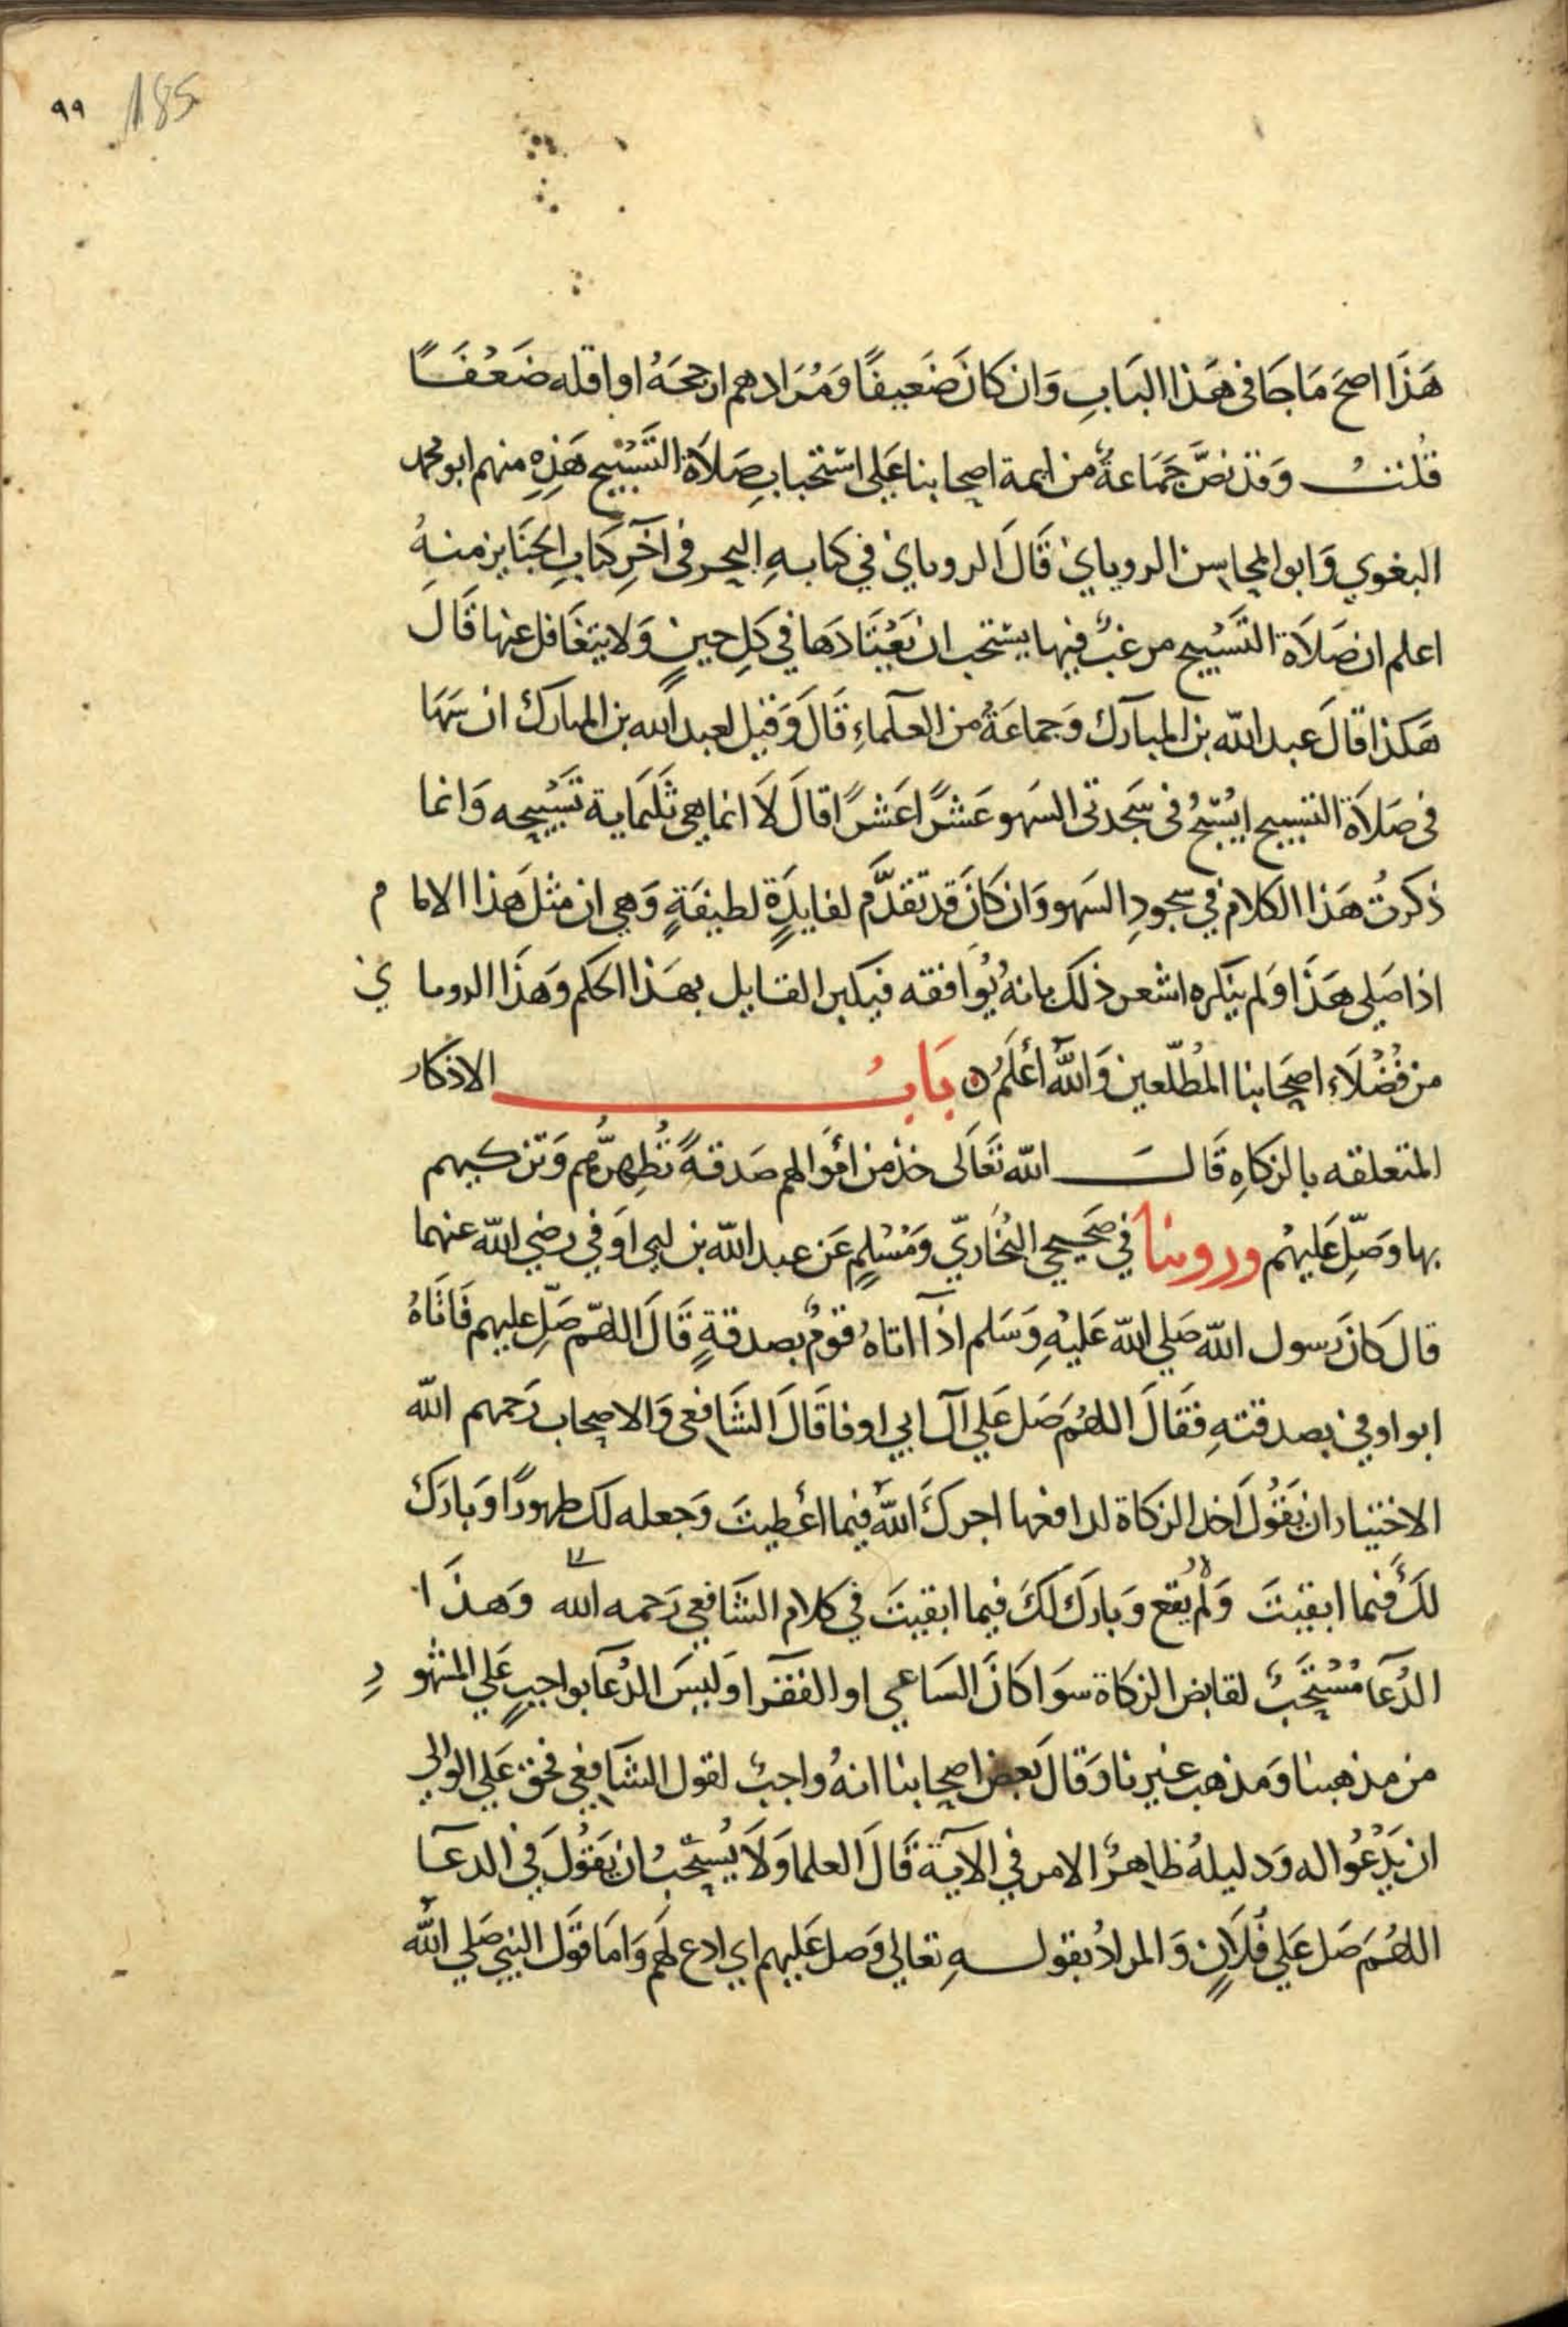 ٩٩ 185
هَذَا اصح مَا جَا فى هَذا البَابِ وَان كَانَ ضَعيفًا وَمُرَادهم ارجحَهُ او اقله ضَعْفًا
قُلتُ وَقد نصَّ جَمَاعةٌ من ايمة اصحابنا عَلى استحبابِ صَلاَة التَسْبيح هَذِهِ منهم ابو محمد
البغوي وَابو المحاسن الروياني قَالَ الروياني في كتابهِ البحر فى آخَرِ كتَابِ الجنَايز منهُ
اعلم ان صَلاَة التَسْبيح مرغبٌ فيها يستحب ان يَعْتَادَهَا في كَلِ حينٍ وَلا يتغَافل عنها قَالَ
هَكذا قالَ عبد الله بن المبارك وَجماعَةٌ من العلماءِ قَالَ وَقيل لعبد الله بن المبارك ان سَهَا
فى صَلاَة التسبيح ايُسَبّحُ فى سَجدتى السَهو عَشرًا عَشرًا قالَ لاَ انما هي ثَلثماية تَسْبيحه وَانما
ذكرتُ هَذا الكلام في سجودِ السَهو وَان كَانَ قد تقدَّم لفايدَةٍ لطيفَةٍ وَهي ان مثل هَذا الامام
اذا صَلى هَذَا وَلم ينكره اشعر ذلك بانهُ يُوَافقه فيكثر القايل بهَذا الحكم وَهذَا الرويانى
من فُضُلاَءِ اصحَابنا المُطّلعين وَاللهُ أعْلَمُ ٥ بَابُ الاذكار
المتعلقه بالزكاهِ قَالَ الله تَعَالَى خذ من امْوَالهم صَدقةً تُطِهرُّهُم وَتزكيهم
بها وَصَلِّ عَليهْم وروينا في صَحيحي البُخَاريّ وَمُسْلمٍ عَن عبد الله بن ابي اوَفي رضي الله عنهما
قالَ كانَ رَسول الله صَلي الله عَليْهِ وَسَلم اذآ اتاهُ قومٌ بصدقةٍ قَالَ اللهّم صَلِّ عليهم فَاتَاهُ
ابو اوفي بصدقتهِ فقَالَ اللهُمَ صَل عَلي آل ابي اوفا قَالَ الشَافعى وَالاصحاب رَحمهم الله
الاختيار ان يَقُولَ اخذ الزكاة لدافعها اجركَ اللهُ فيما اعْطيتَ وَجعله لك طهورًا وَبارَك
لكَ فيما ابقيتَ وَلم يقع وَبارَك لَكَ فيما ابقيتَ في كلام الشَافعي رَحمه الله وَهذَا
الدُعَا مُسْتحَبٌ لقابض الزكاة سوَا كَانَ السَاعي او الفقرا وَليسَ الدُعَا بواجبٍ عَلي المشهورِ
من مذهبنا وَمذهب غيرنا وَقالَ بَعض اصحابنا انهُ واجبٌ لقول الشَافعي فحق عَلي الوالي
ان يَدْعُوا له وَدليلهُ ظاهرُ الامر في الآية قَالَ العلما وَلاَ يُسْتحَبُ ان يَقُولَ في الدعَا
اللهُمَ صَل عَلي فُلاَنٍ وَالمرادُ بقولهِ تعَالي وَصل عَليهم اي ادع لهم وَامَا قَول النبي صَلي الله